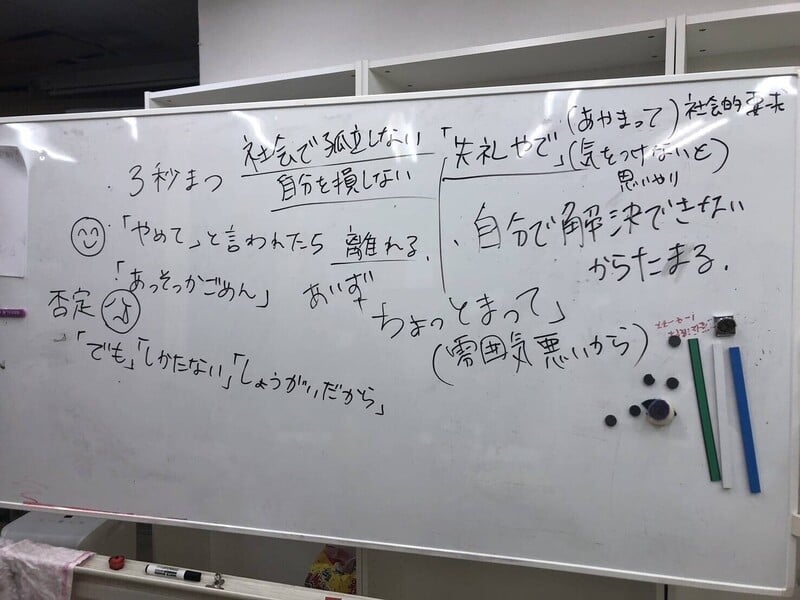 3秒まつ
社会で孤立しない
自分を損しない
「やめて」と言われたら 離れる、
「あっそっかごめん」 あいず
否定
「でも」「しかたない」「しょうがいだから」
「失礼やで」
(あやまって) 社会的要求
(気をつけないと)
思いやり
、自分で解決できない
からたまる.
ちょっとまって」
(雰囲気悪いから)